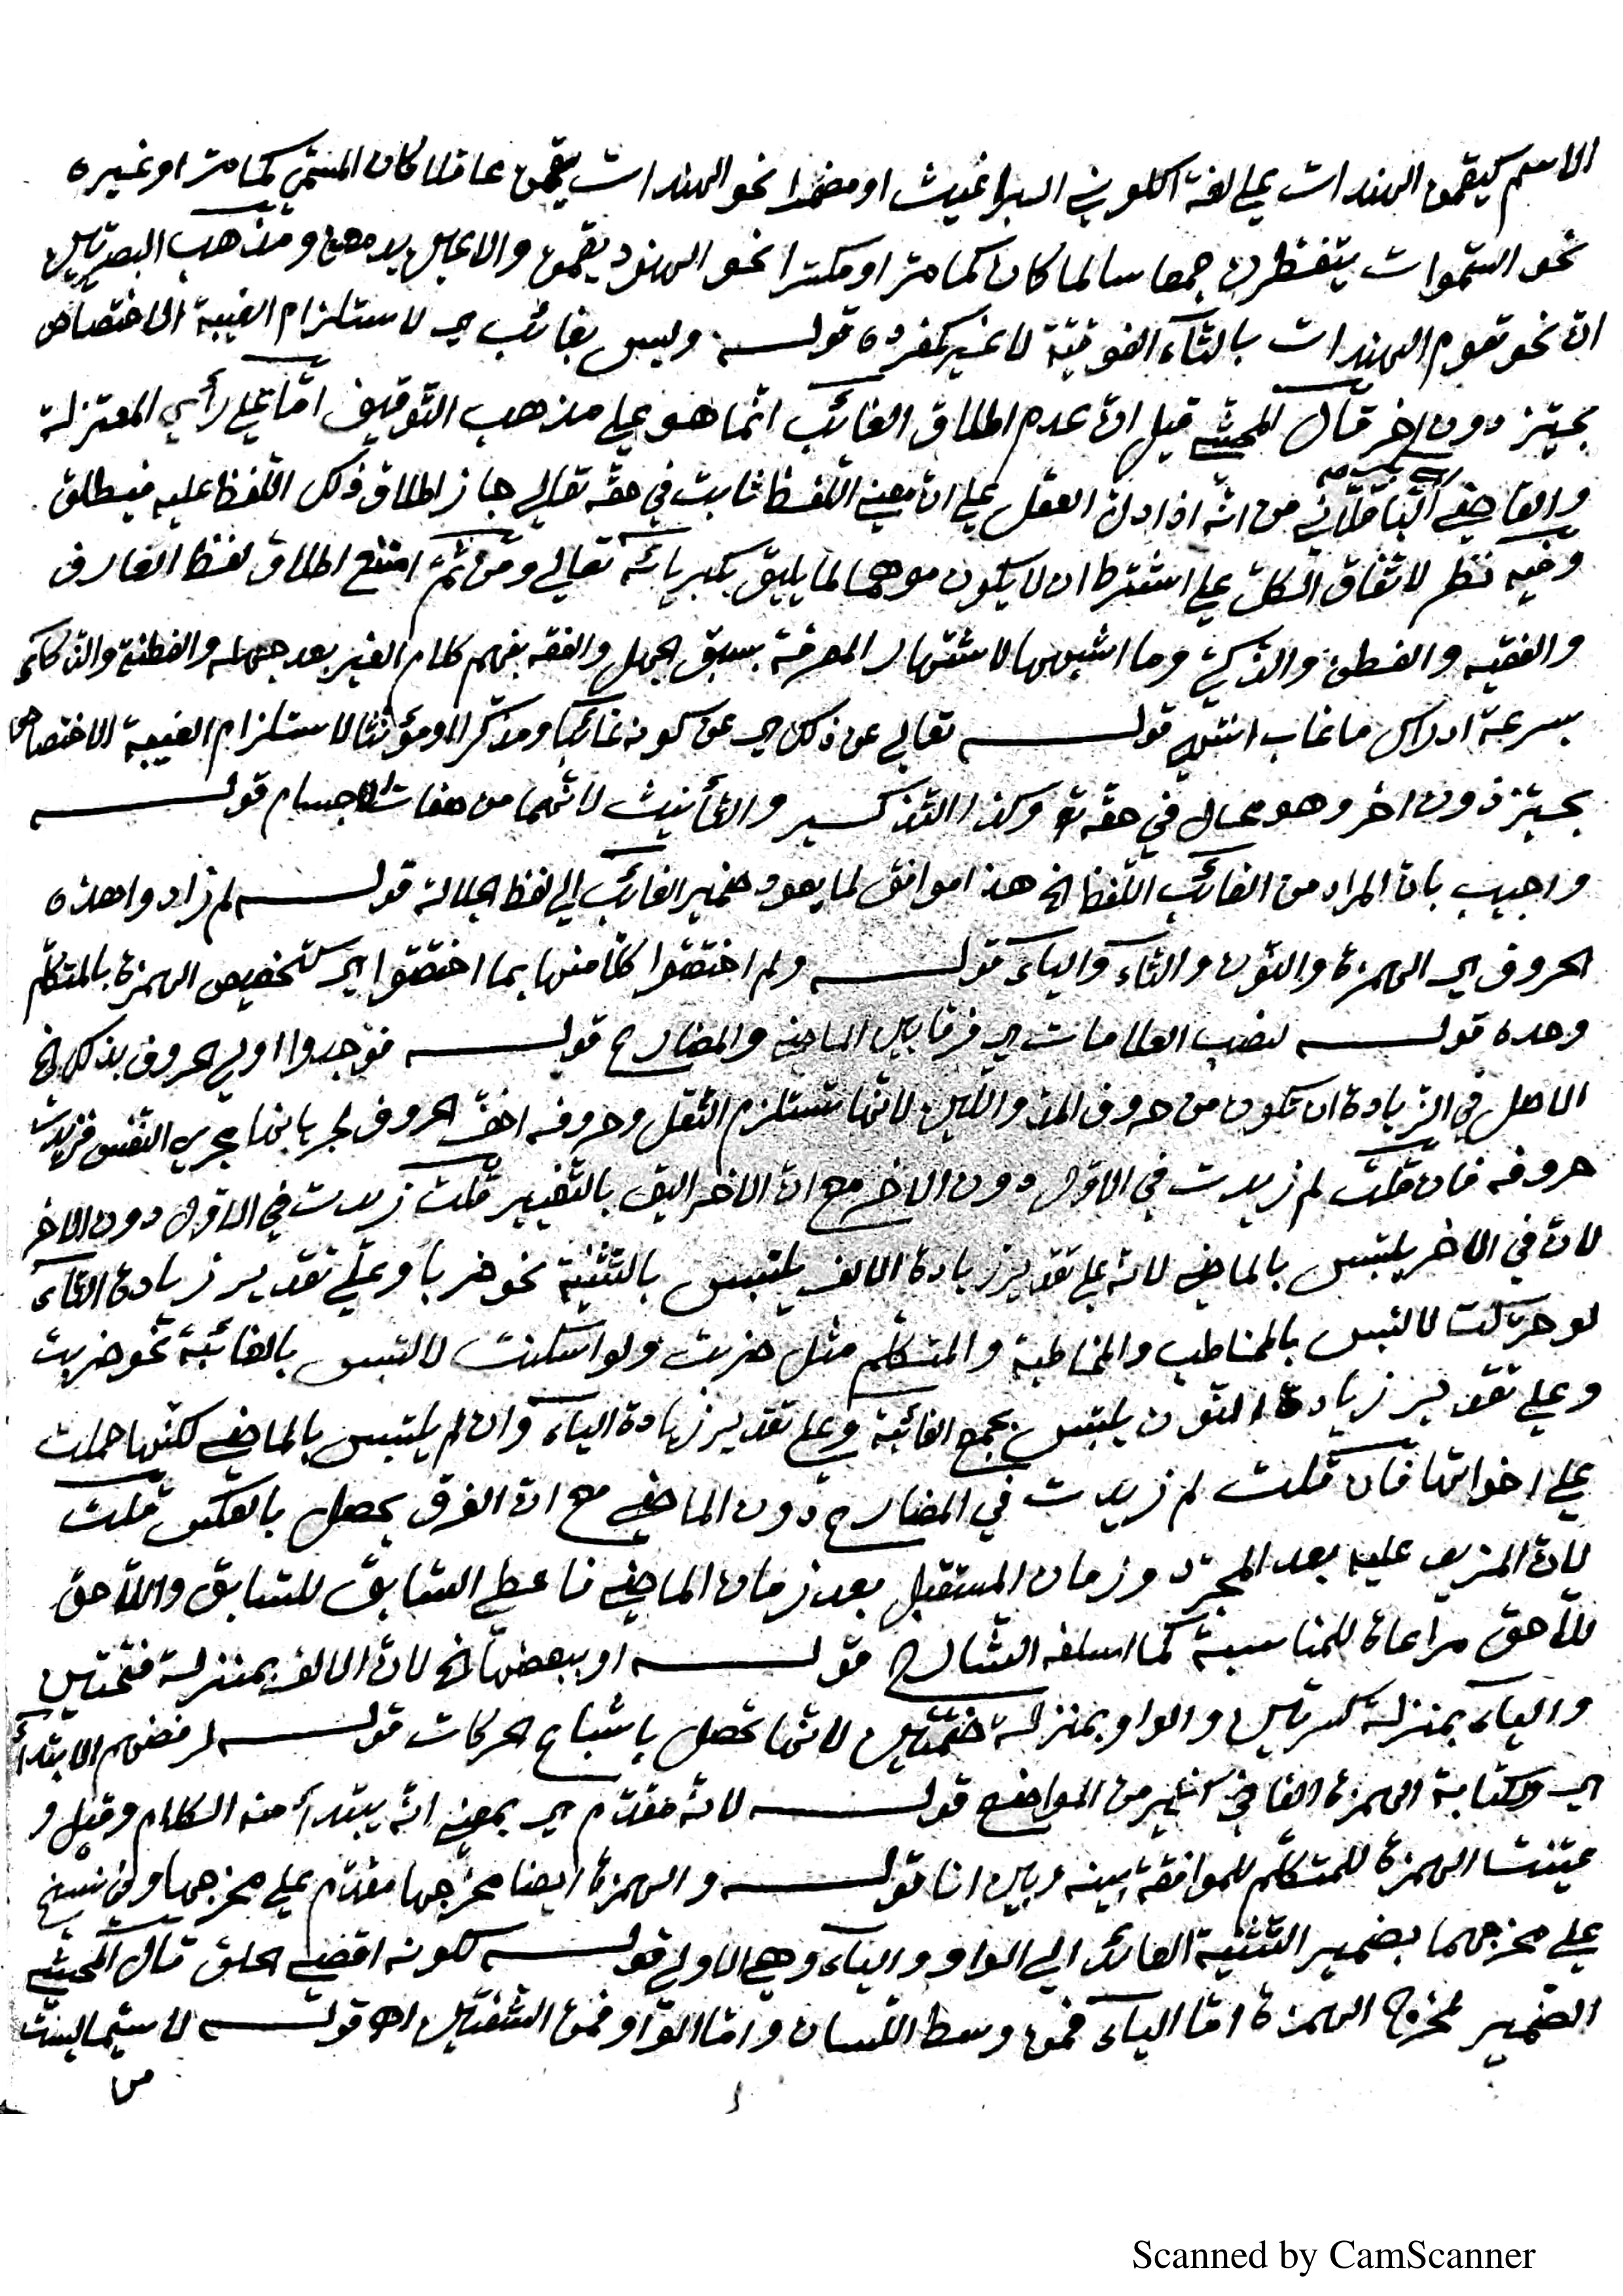 الاسم كيقمن الهندات على لغة اكلوني البراغيث او مضمرا نحو الهندات يقمن عاقلا كان المسمى كما مر او غيره
نحو السموات يتفطرن جمعا سالما كان كما مر او مكسرا نحو الهنود يقمن والاعين يدمعن ومذهب البصريين
ان نحو تقوم الهندات بالتاء الفوقية لا غير كمفرده قوله وليس بغائب اي لاستلزام الغيبة الاختصاص
بحيز دون اخر قال المحشي قيل ان عدم اطلاق الغائب انما هو على مذهب التوقيف اما على رأي المعتزلة
والقاضي الباقلاني من انه اذا دل العقل على ان معنى اللفظ ثابت في حقه تعالى جاز اطلاق ذلك اللفظ عليه فيطلق
وفيه نظر لاتفاق الكل على اشتراط ان لا يكون موهما لما يليق بكبريائه تعالى ومن ثم امتنع اطلاق لفظ العارف
والفقيه والفطن والذكي وما اشبهها لاشتهار المعرفة بسبق الجهل والفقه بفهم كلام الغير بعد جهله والفطنة والذكاء
بسرعة ادراك ما غاب انتهى قوله تعالى عن ذلك اي عن كونه غائبا ومذكرا ومؤنثا لاستلزام الغيبة الاختصاص
بحيز دون اخر وهو محال في حقه تع وكذا التذكير والتأنيث لانهما من صفات الاجسام قوله
واجيب بان المراد من الغائب اللفظ الخ هذا موافق لما يعود ضمير الغائب الى لفظ الجلالة قوله لم زادوا هذه
الحروف اي الهمزة والنون والتاء والياء قوله ولم اختصوا كلا منها بما اختصوا اي كتخصيص الهمزة بالمتكلم
وحده قوله لنصب العلامات اي فرقا بين الماضي والمضارع قوله فوجدوا اولى الحروف بذلك الخ
الاصل في الزيادة ان تكون من حروف المد واللين لانها تستلزم الثقل وحروفه اخف الحروف لجريانها مجرى النفس فزيدت
حروفه فان قلت لم زيدت في الاول دون الاخر مع ان الاخر اليق بالتغيير قلت زيدت في الاول دون الاخر
لان في الاخر يلتبس بالماضي لانه على تقدير زيادة الالف يلتبس بالتثنية نحو ضربا وعلى تقدير زيادة التاء
لو حركت لالتبس بالمخاطب والمخاطبة والمتكلم مثل ضربت ولو اسكنت لالتبس بالغائبة نحو ضربت
وعلى تقدير زيادة النون يلتبس بجمع الغائبة وعلى تقدير زيادة الياء وان لم يلتبس بالماضي لكنها حملت
على اخواتها فان قلت لم زيدت في المضارع دون الماضي مع ان الفرق يحصل بالعكس قلت
لان المزيد عليه بعد المجرد وزمان المستقبل بعد زمان الماضي فاعطي السابق للسابق واللاحق
للاحق مراعاة للمناسبة كما اسلفه الشارح قوله او ببعضها الخ لان الالف بمنزلة فتحتين
والياء بمنزلة كسرتين والواو بمنزلة ضمتين لانها تحصل باشباع الحركات قوله لرفضهم الابتداء
اي وكتابة الهمزة الفا في كثير من المواضع قوله لانه مقدم اي بمعنى انه يبتدأ منه الكلام وقيل و
عينت الهمزة للمتكلم للموافقة بينه وبين انا قوله والهمزة ايضا مخرجها مقدم على مخرجها وفي نسخ
على مخرجهما بضمير التثنية العائد الى الواو والياء وهي الاولى قوله لكونه اقصى الحلق قال المحشي
الضمير لمخرج الهمزة اما الياء فمن وسط اللسان واما الواو فمن الشفتين اه قوله لا سيما ليست